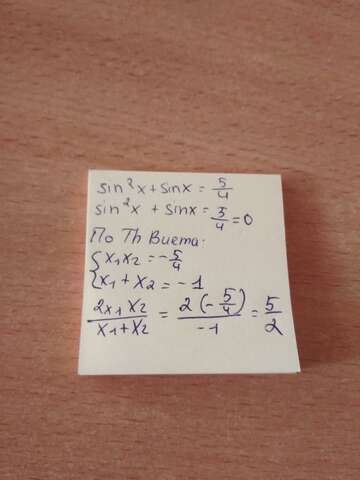 sin²x + sinx = 5/4
sin²x + sinx = 3/4 = 0
По Th Виета:
{ x₁x₂ = -5/4
{ x₁ + x₂ = -1
2x₁x₂/x₁+x₂ = 2(-5/4)/-1 = 5/2